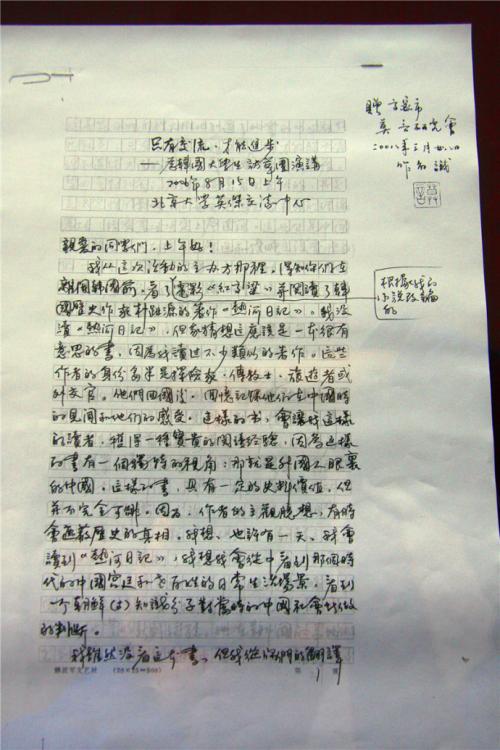 只有交流,才能進步
——在韓國大學生訪華團演講
2006年8月15日上午
北京大学英傑交流中心
贈高密市
莫言研究會
親愛的同學们,上午好!
我从這次活動的主办方那裡,得知你们在
離開韓國前,看了電影《紅高粱》并閱讀了韓
國歷史作家朴趾源的著作《熱河日記》。我没
讀《熱河日記》,但我猜想這應該是一本很有
意思的書,因爲我讀过不少類似的著作。這些
作者的身份多半是探險家、傳教士、旅遊者或
外交官。他們回國後,回憶記録他们在中國時
的見聞和他們的感受。這樣的书,會讓我這樣
的讀者,獲得一種寶貴的閱讀经驗,因爲這樣
的書有一個獨特的視角:那就是外國人眼裏
的中國。這樣的書,具有一定的史料價值,但
并不完全可靠。因为,作者的主觀臆想,有時
會遮蔽歷史的真相。我想,也許有一天,我會
讀到《熱河日記》,我想我會從中看到那個時
代的中國宫廷和老百姓的日常生活場景,看到
一个朝鮮知識分子對當時的中國社會所做
的判斷。
我雖然没看这本書,但我從你們的翻譯
根據我的
小說改編
的
解放军文艺社